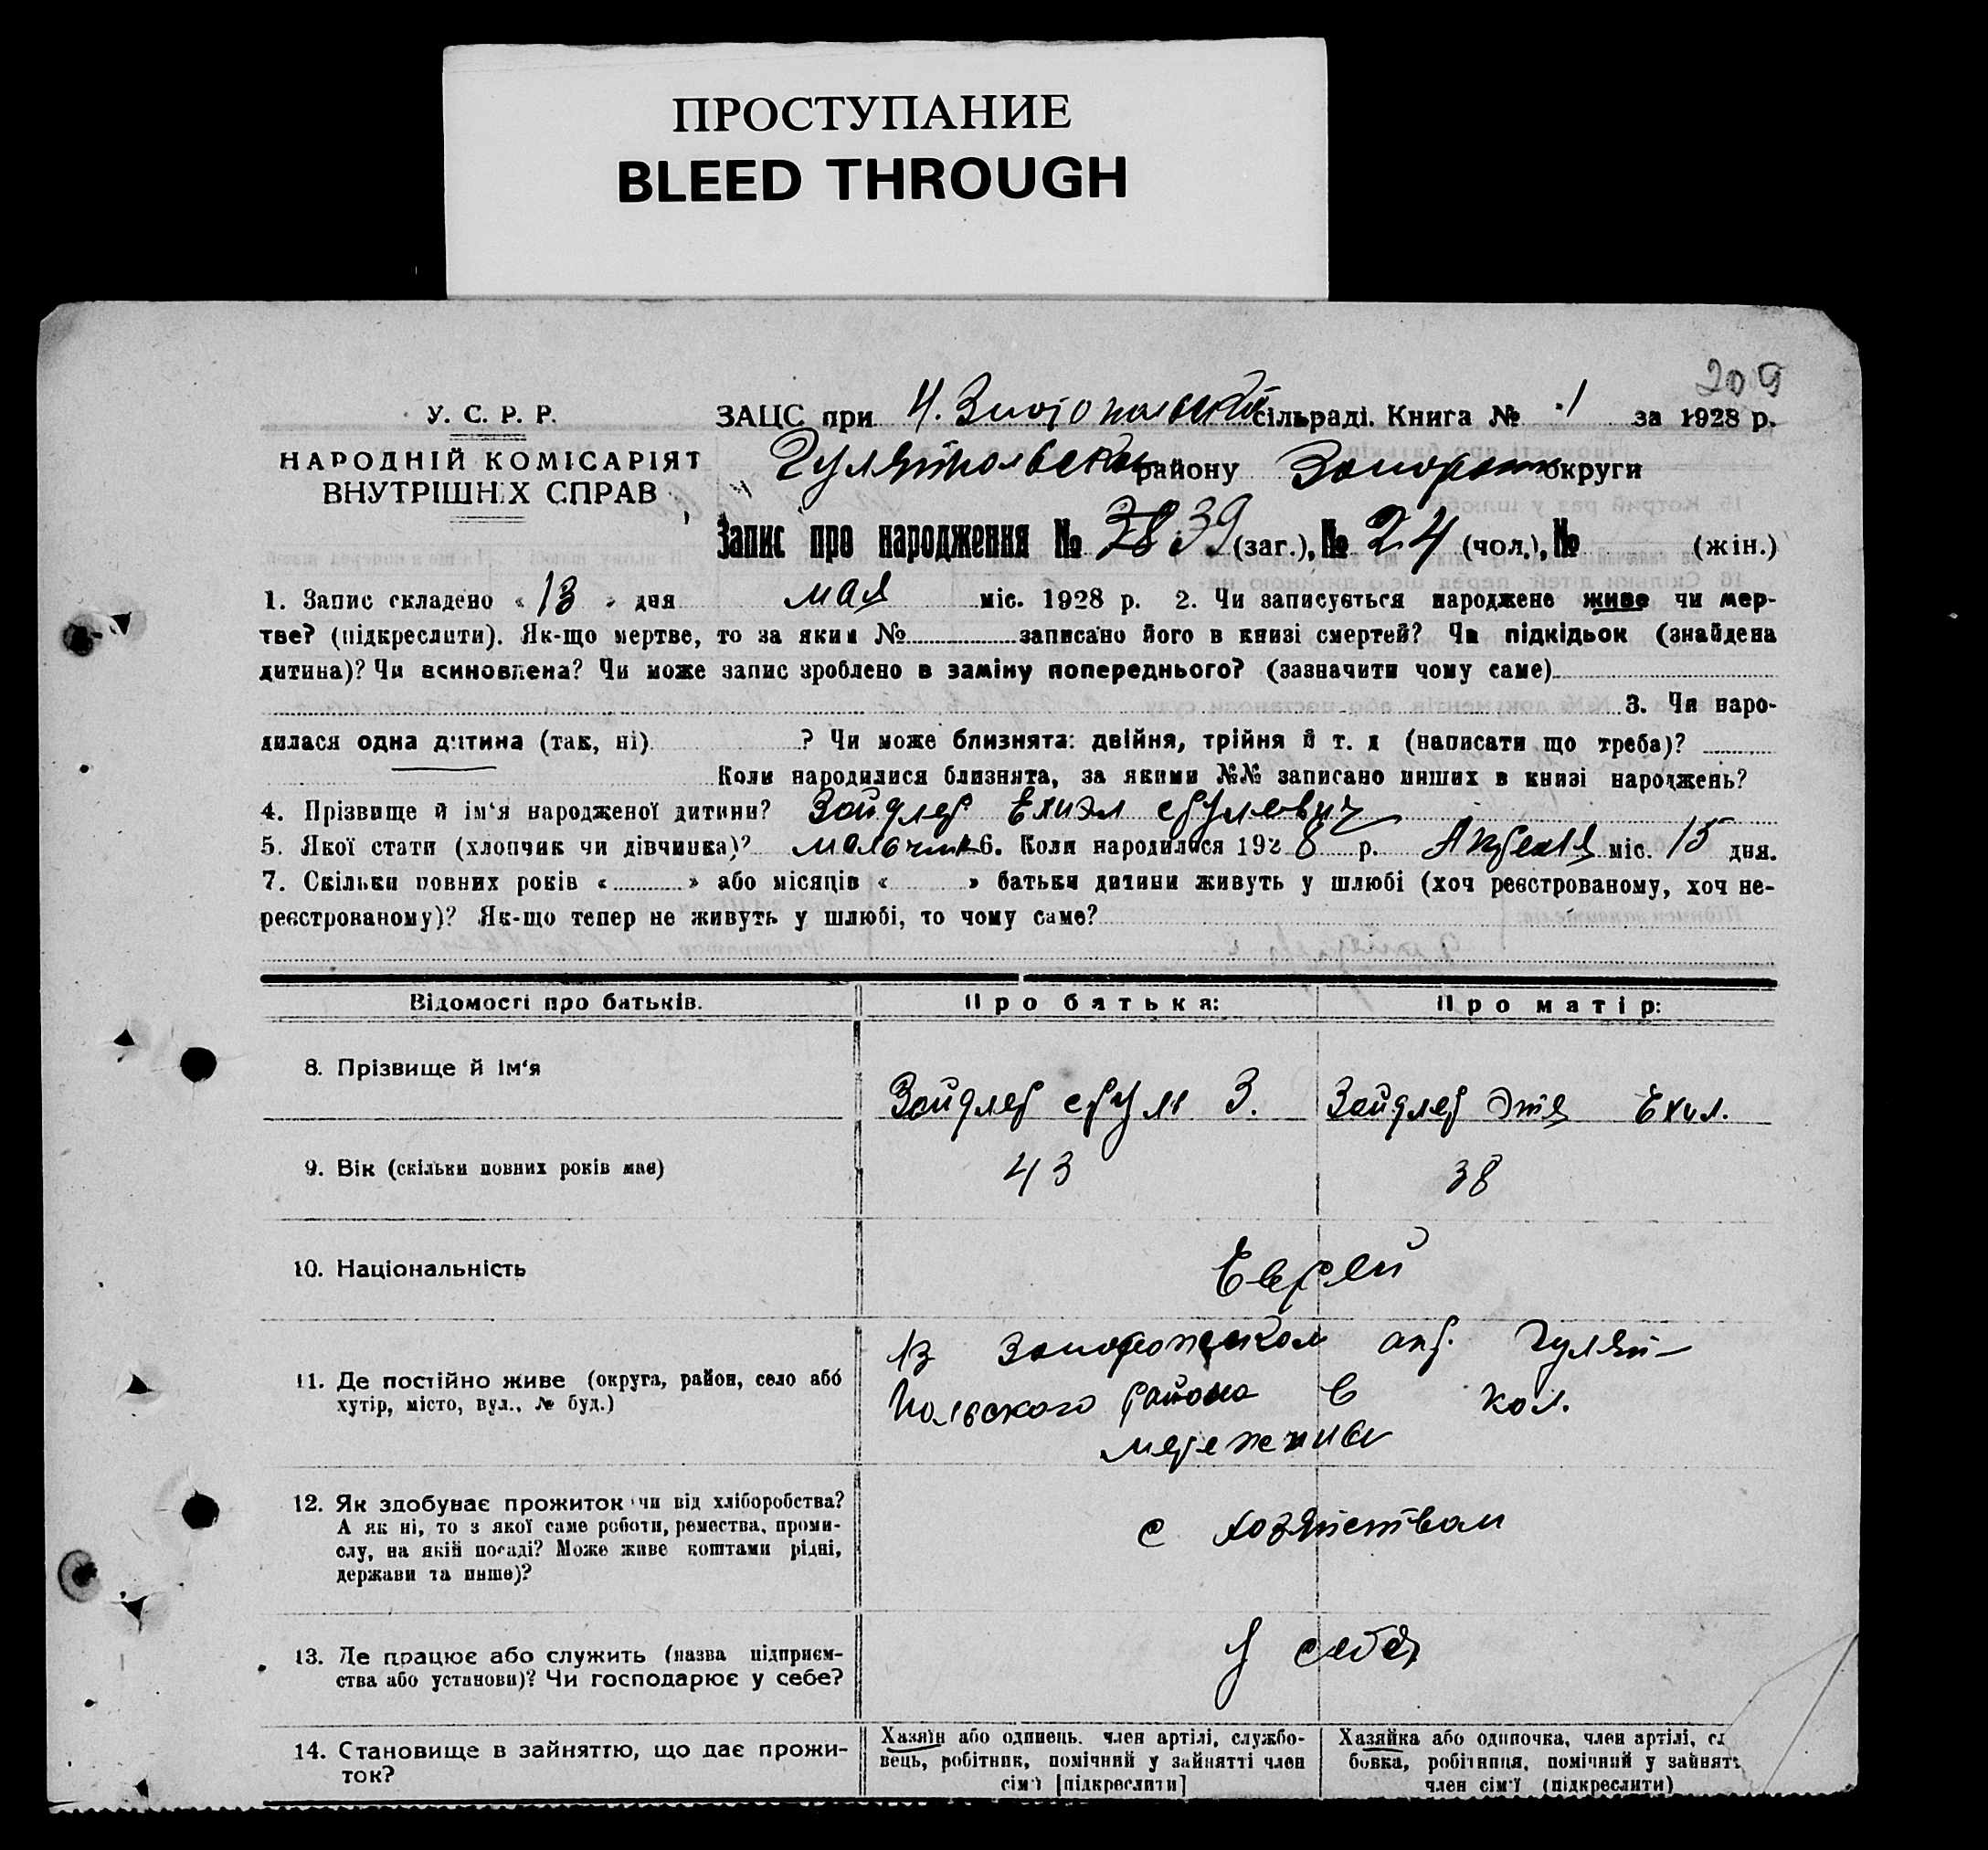 ПРОСТУПАНИЕ
BLEED THROUGH
209
У. С. Р. Р.
НАРОДНІЙ КОМІСАРІЯТ
ВНУТРІШНІХ СПРАВ
ЗАЦС при сільраді. Книга № 1 за 1928 р.
Гуляйпольского району Запорож округи
Запис про народження № 38 39 (заг.), № 24 (чол.), № (жін.)
1. Запис складено « 13 » дня мая міс. 1928 р. 2. Чи записується народжене живе чи мер-
тве? (підкреслити). Як-що мертве, то за яким № записано його в книзі смертей? Чи підкідьок (знайдена
дитина)? Чи всиновлена? Чи може запис зроблено в заміну попереднього? (зазначити чому саме)
3. Чи наро-
дилася одна дитина (так, ні) ? Чи може близнята: двійня, трійня й т. д (написати що треба)?
Коли народилися близнята, за якими №№ записано инших в книзі народжень?
4. Прізвище й ім'я народженої дитини? Зайдлер Ехиэл Срулевич
5. Якої стати (хлопчик чи дівчинка)? мальчик 6. Коли народилися 1928 р. Апреля міс. 15 дня.
7. Скільки повних років « » або місяців « » батьки дитини живуть у шлюбі (хоч реєстрованому, хоч не-
реєстрованому)? Як-що тепер не живуть у шлюбі, то чому саме?
Відомості про батьків. Про батька: Про матір:
8. Прізвище й ім'я
Зайдлер Срул З. Зайдлер Этя Ехил.
9. Вік (скільки повних років має) 43 38
10. Національність Еврей
11. Де постійно живе (округа, район, село або
хутір, місто, вул., № буд.)
Запорожском окр. Гуляй-
польского района в кол.
Межениви
12. Як здобуває прожиток чи від хліборобства?
А як ні, то з якої саме роботи, ремества, проми-
слу, на якій посаді? Може живе коштами рідні,
держави та инше)?
с хозяйством
13. Де працює або служить (назва підприєм-
ства або установи)? Чи господарює у себе?
у себя
14. Становище в зайняттю, що дає прожи-
ток?
Хазяїн або одинець. член артілі, службо-
вець, робітник, помічний у зайнятті член
сім'ї [підкреслити]
Хазяйка або одиночка, член артілі, сл
бовка, робітниця, помічний у зайнятт
член сім'ї (підкреслити)